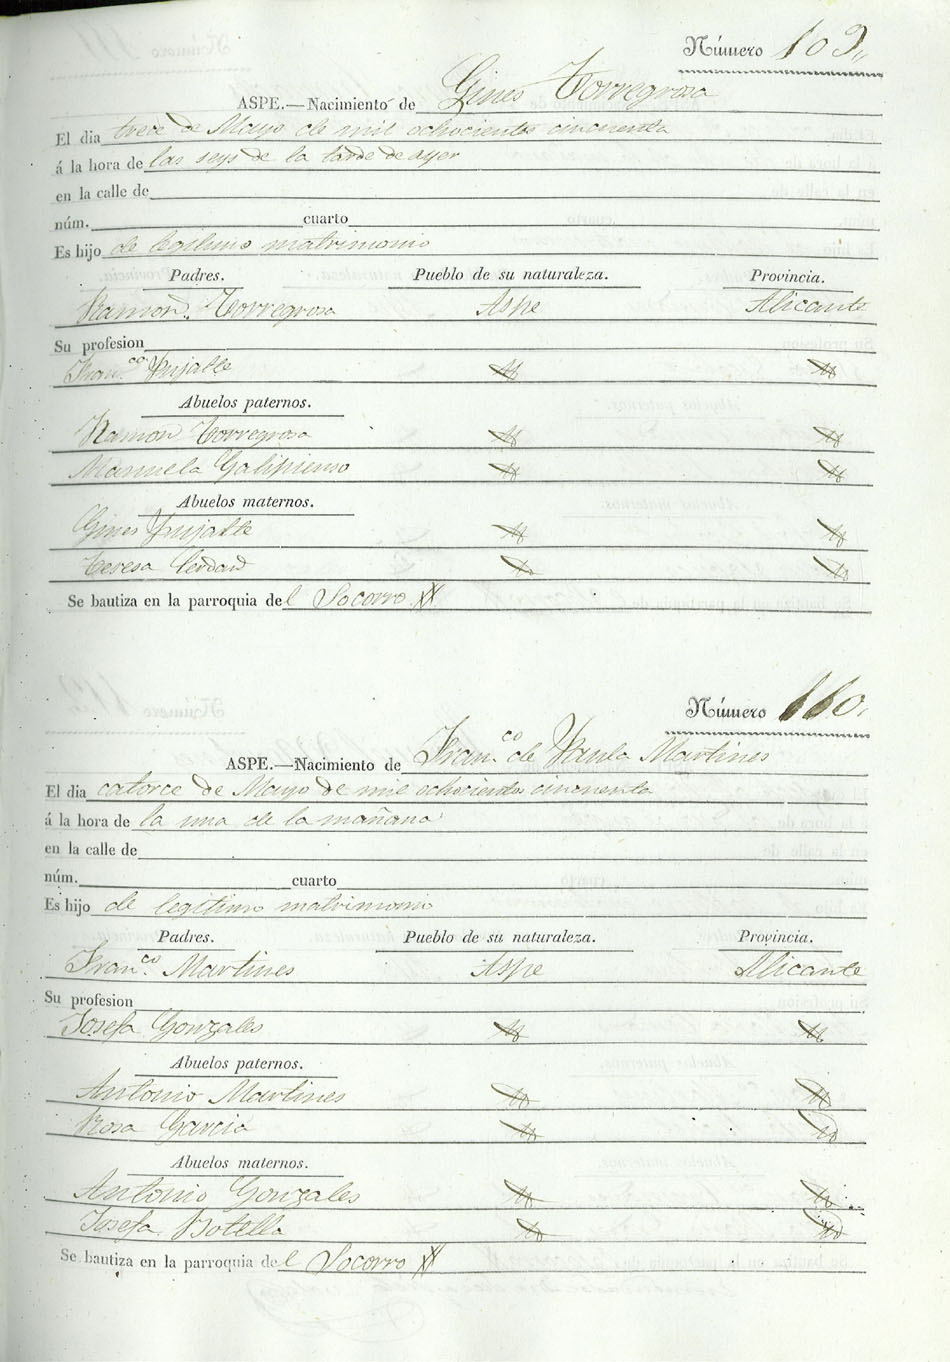 Número 109.
ASPE.—Nacimiento de Gines Torregrosa
El dia trece de Mayo de mil ochocientos cincuenta
á la hora de las seys de la tarde de ayer
en la calle de
núm. cuarto
Es hijo de legitimo matrimonio
Padres. Pueblo de su naturaleza. Provincia.
Ramon Torregrosa Aspe Alicante
Su profesion
Franco Pujalte
Abuelos paternos.
Ramon Torregrosa
Manuela Galipienso
Abuelos maternos.
Gines Pujalte
Teresa Cerdan
Se bautiza en la parroquia del Socorro
Número 110.
ASPE.—Nacimiento de Franco de Paula Martines
El dia catorce de Mayo de mil ochocientos cincuenta
á la hora de la una de la mañana
en la calle de
núm. cuarto
Es hijo de legitimo matrimonio
Padres. Pueblo de su naturaleza. Provincia.
Franco Martines Aspe Alicante
Su profesion
Josefa Gonzales
Abuelos paternos.
Antonio Martines
Rosa Garcia
Abuelos maternos.
Antonio Gonzales
Josefa Botella
Se bautiza en la parroquia del Socorro